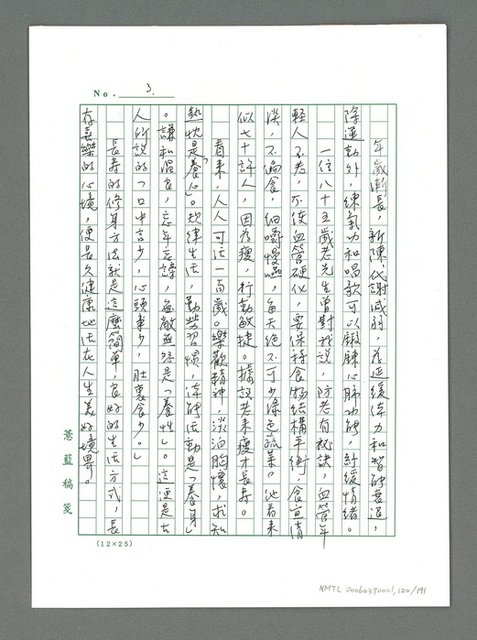 No. 3.
年歲漸長，新陳代謝減弱，為延緩體力和智能衰退，
除運動外，練氣功和唱歌可以鍛鍊心肺功能，紓緩情緒。
一位八十五歲老先生曾對我說，防老有秘訣，血管年
輕人不老，不使血管硬化，要保持食物結構平衡，食宜清
淡，不偏食，細嚼慢嚥，每天絕不可少深色蔬菜。他看來
似七十許人，因為瘦，行動敏捷。據說老來瘦才長壽。
看來，人人可活一百歲。樂觀精神，淡泊胸懷，求知
熱忱是「養心」。規律生活，勤勞習慣，活動是「養身」
。謙和溫良，忘年忘譯，無敵無怨是「養性」。這還是古
人所說的「口中言少，心頭事少，肚裏食少。」
長壽的修身方法就是這麼簡單，良好的生活方式，長
存喜樂的心境，便是久健康地活在人生美好境界。
蒼藍稿箋
(12×25)
NMTL 20060390001, 120/191